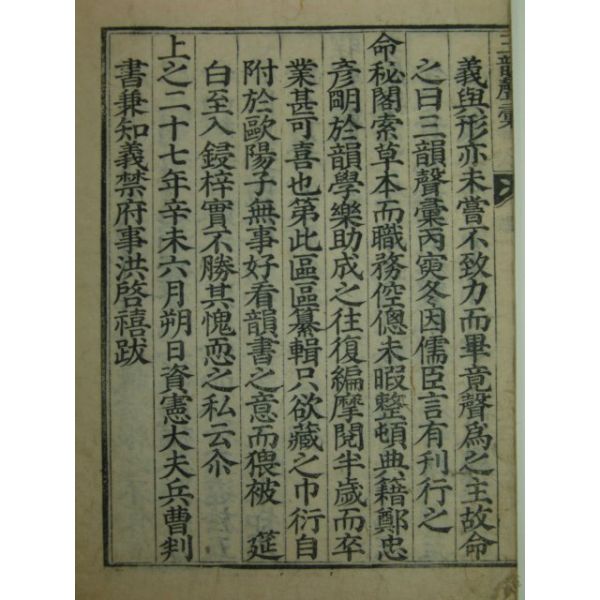 三韻聲彙
義與形亦未嘗不致力而畢竟聲爲之主故命
之曰三韻聲彙丙寅冬因儒臣言有刊行之
命秘閣索草本而職務倥傯未暇整頓典籍鄭忠
彦朙於韻學樂助成之往復編摩閱半歲而卒
業甚可喜也第此區區纂輯只欲藏之巾衍自
附於歐陽子無事好看韻書之意而猥被 筵
白至入鋟梓實不勝其愧恧之私云尒
上之二十七年辛未六月朔日資憲大夫兵曹判
書兼知義禁府事洪啓禧跋